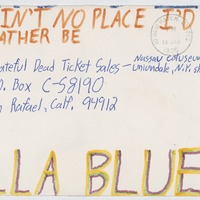 AIN'T NO PLACE I'D
RATHER BE
Grateful Dead Ticket Sales—
Nassau Coliseum
Uniondale, N.Y. s
P.O. Box C-S8190
San Rafael, Calf. 94912
LLA BLUE